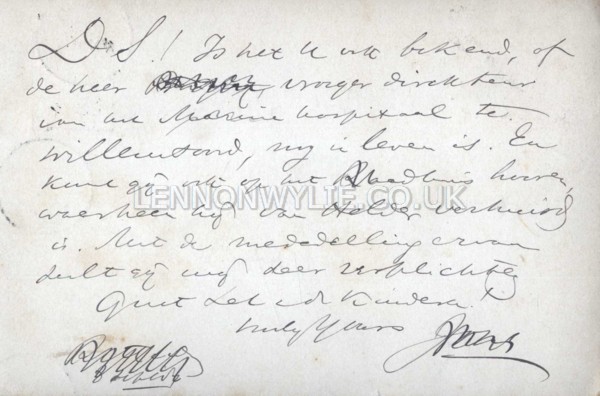 D. S.! Is het U ook bekend, of
de heer vroeger direkteur
van het Marine hospitaal te
Willemsoord, nog in leven is. En
kunt gij ook op het Raadhuis hooren,
waarheen hij van Helder verhuisd
is. Met de mededeeling ervan
zult gij mij zeer verplichten
Groet Let en de Kinderen!
truly Yours
LENNONWYLIE.CO.UK